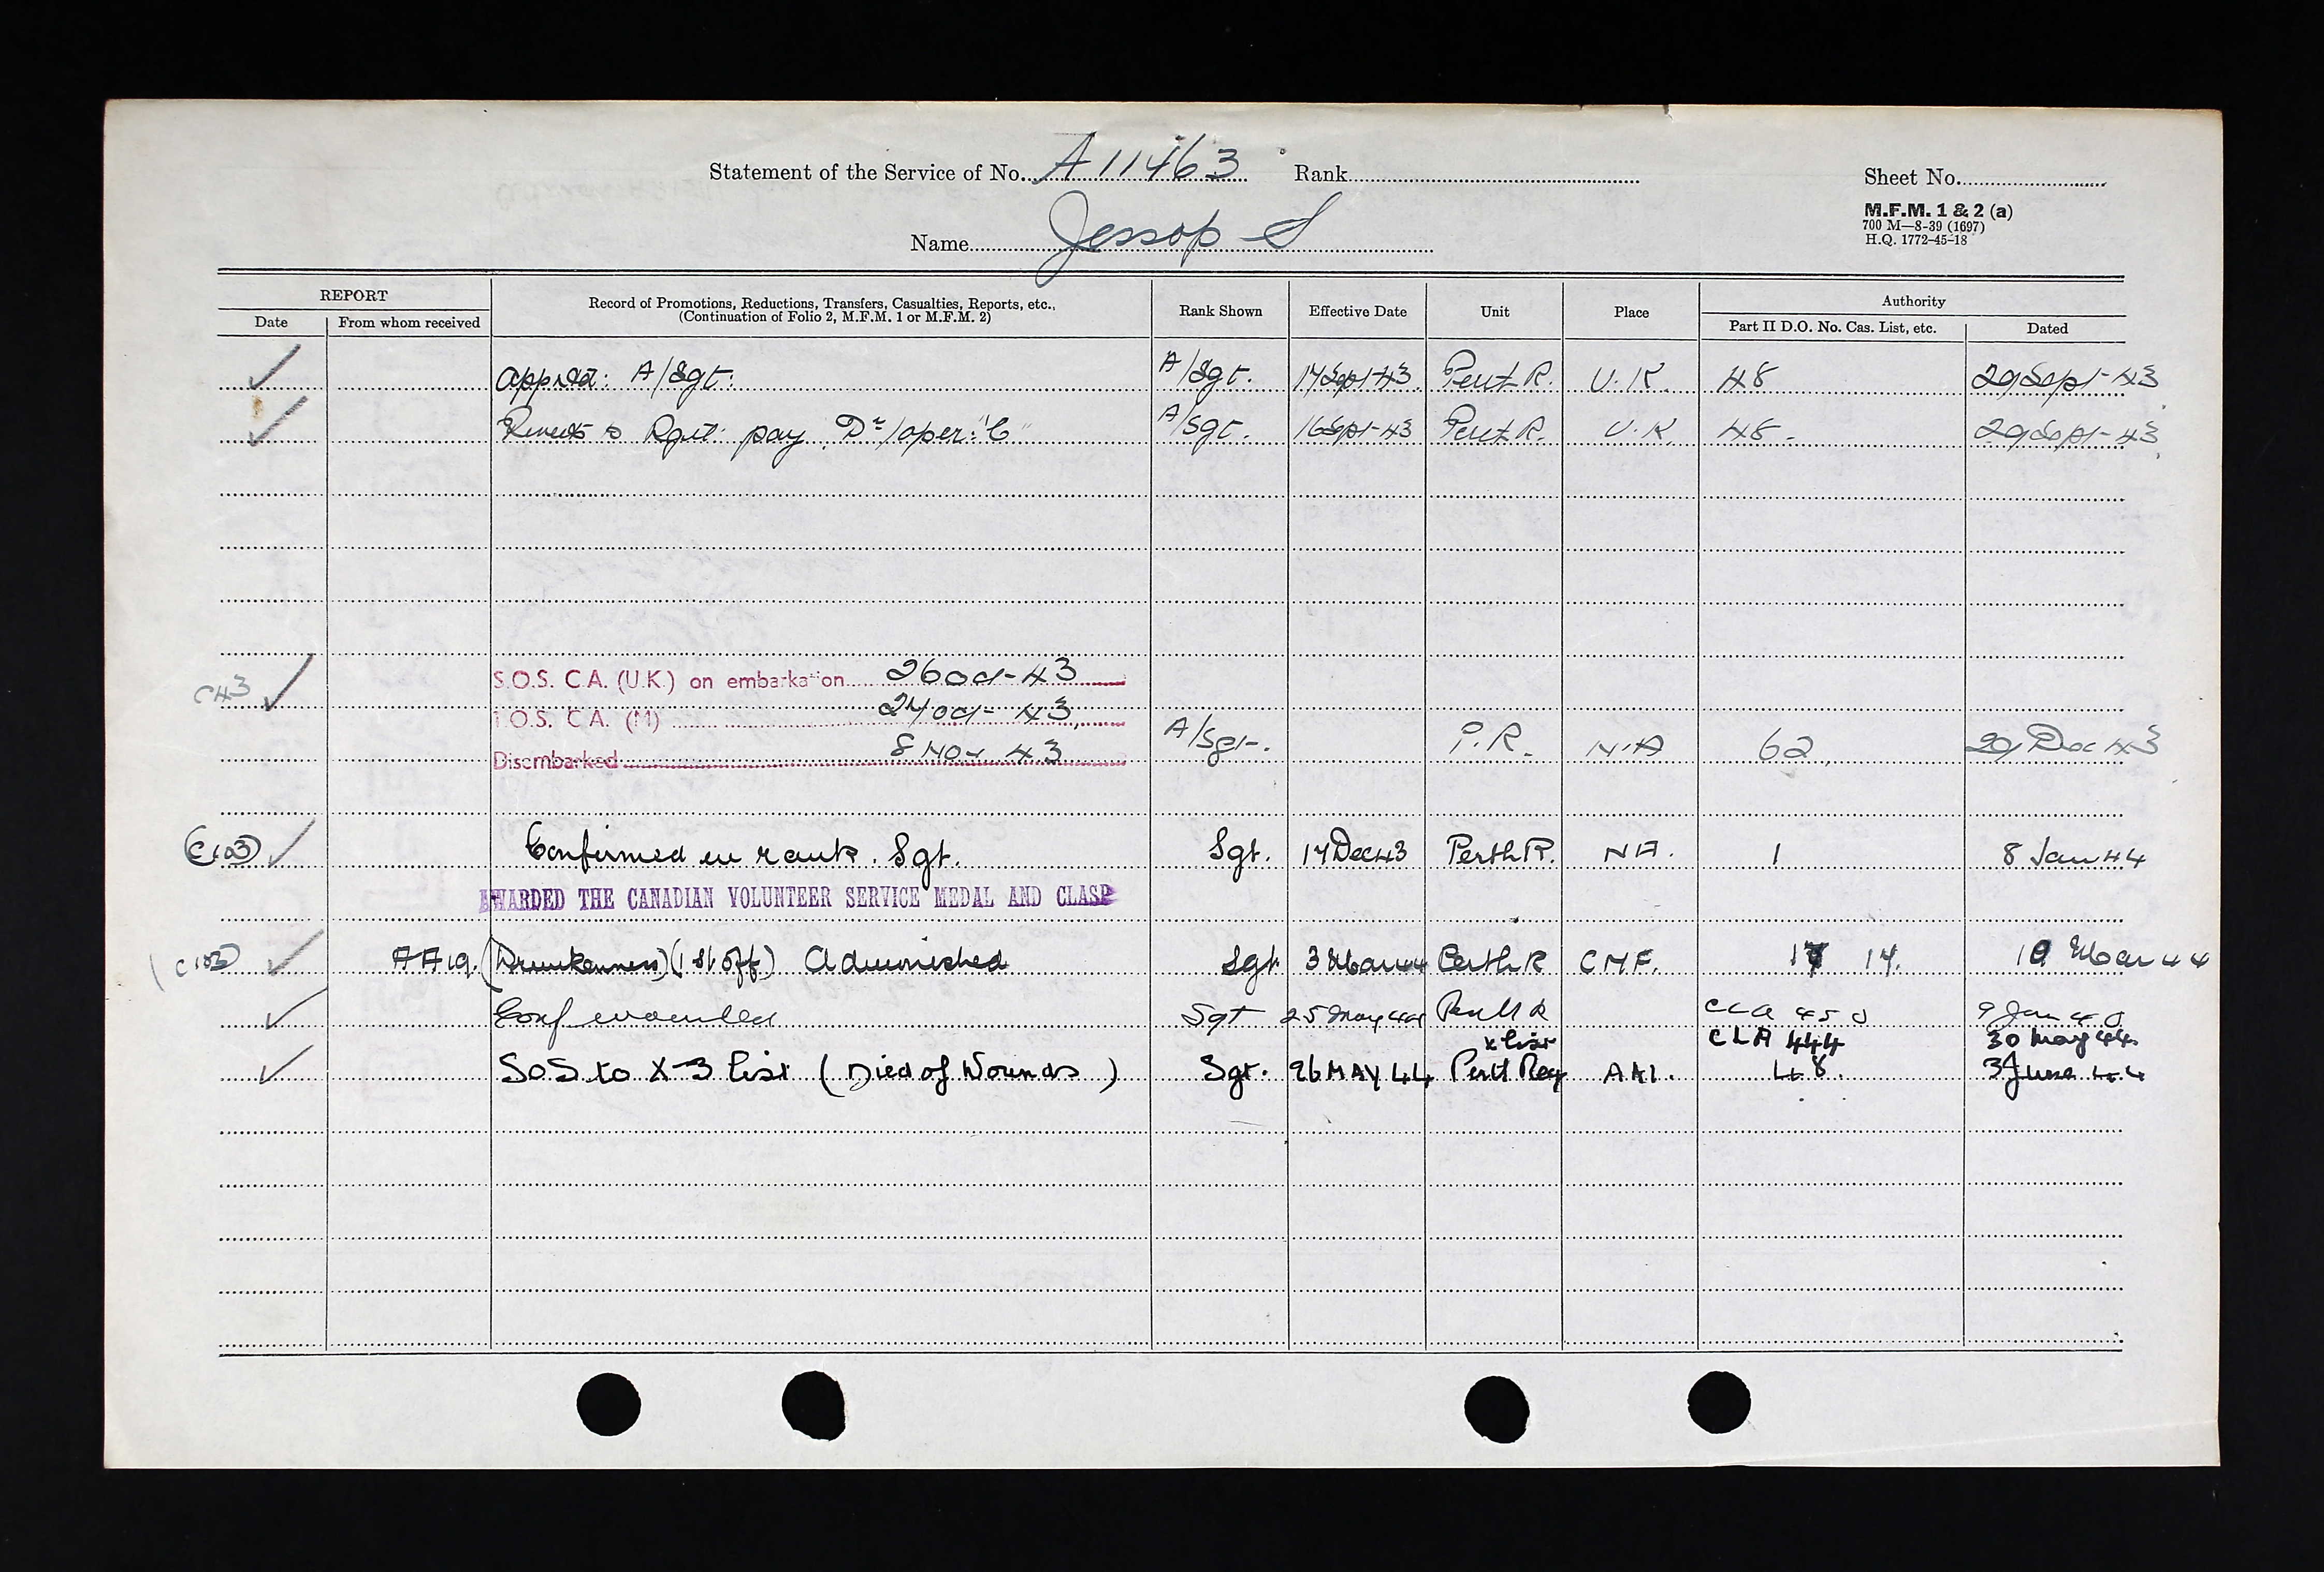 Statement of the Service of No. A 11463 Rank Sheet No.
M.F.M. 1 & 2 (a)
700 M—8-39 (1697)
H.Q. 1772-45-18
Name Jessop S
REPORT Record of Promotions, Reductions, Transfers, Casualties, Reports, etc., Rank Shown Effective Date Unit Place Authority
(Continuation of Folio 2, M.F.M. 1 or M.F.M. 2)
Date From whom received Part II D.O. No. Cas. List, etc. Dated
A/Sgt. A/Sgt. 17 Sept-43 Perth R. U.K. 48 29 Sept-43
to Rgtl pay. Dr/oper: "C" A/Sgt. 16 Sept-43 Perth R. U.K. 48. 29 Sept-43
C43 S.O.S. C.A. (U.K.) on embarkation 26 Oct-43
T.O.S. C.A. (M) 27 Oct-43
Disembarked 8 Nov 43 A/Sgt. P.R. N.A 62 29 Dec 43
C103 Confirmed in rank. Sgt. Sgt. 17 Dec 43 Perth R. N A. 1 8 Jan 44
AWARDED THE CANADIAN VOLUNTEER SERVICE MEDAL AND CLASP
C103 AA19. (Drunkenness) (1st Off) Admonished Sgt. 3 Mar 44 Perth R CMF. 14. 10 Mar 44
Conf wounded Sgt 25 May 44 Perth R CLA 450 9 Jun 40
x list CLA 444 30 May 44
SOS to X-3 list (Died of Wounds) Sgt. 26 MAY 44 Perth Reg AAI. 48. 3 June 44